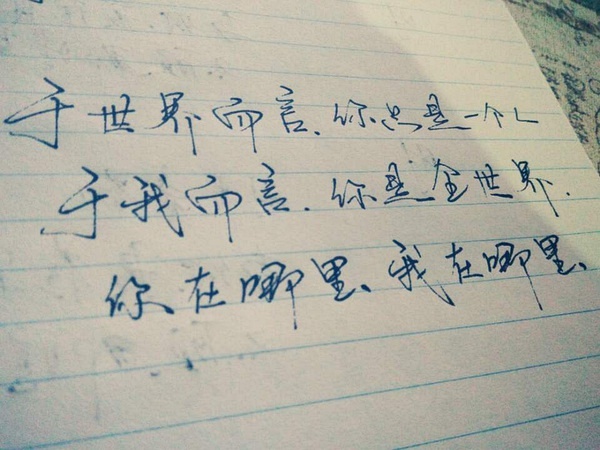 于世界而言、你只是一个人
于我而言、你是全世界、
你、在哪里、我在哪里、